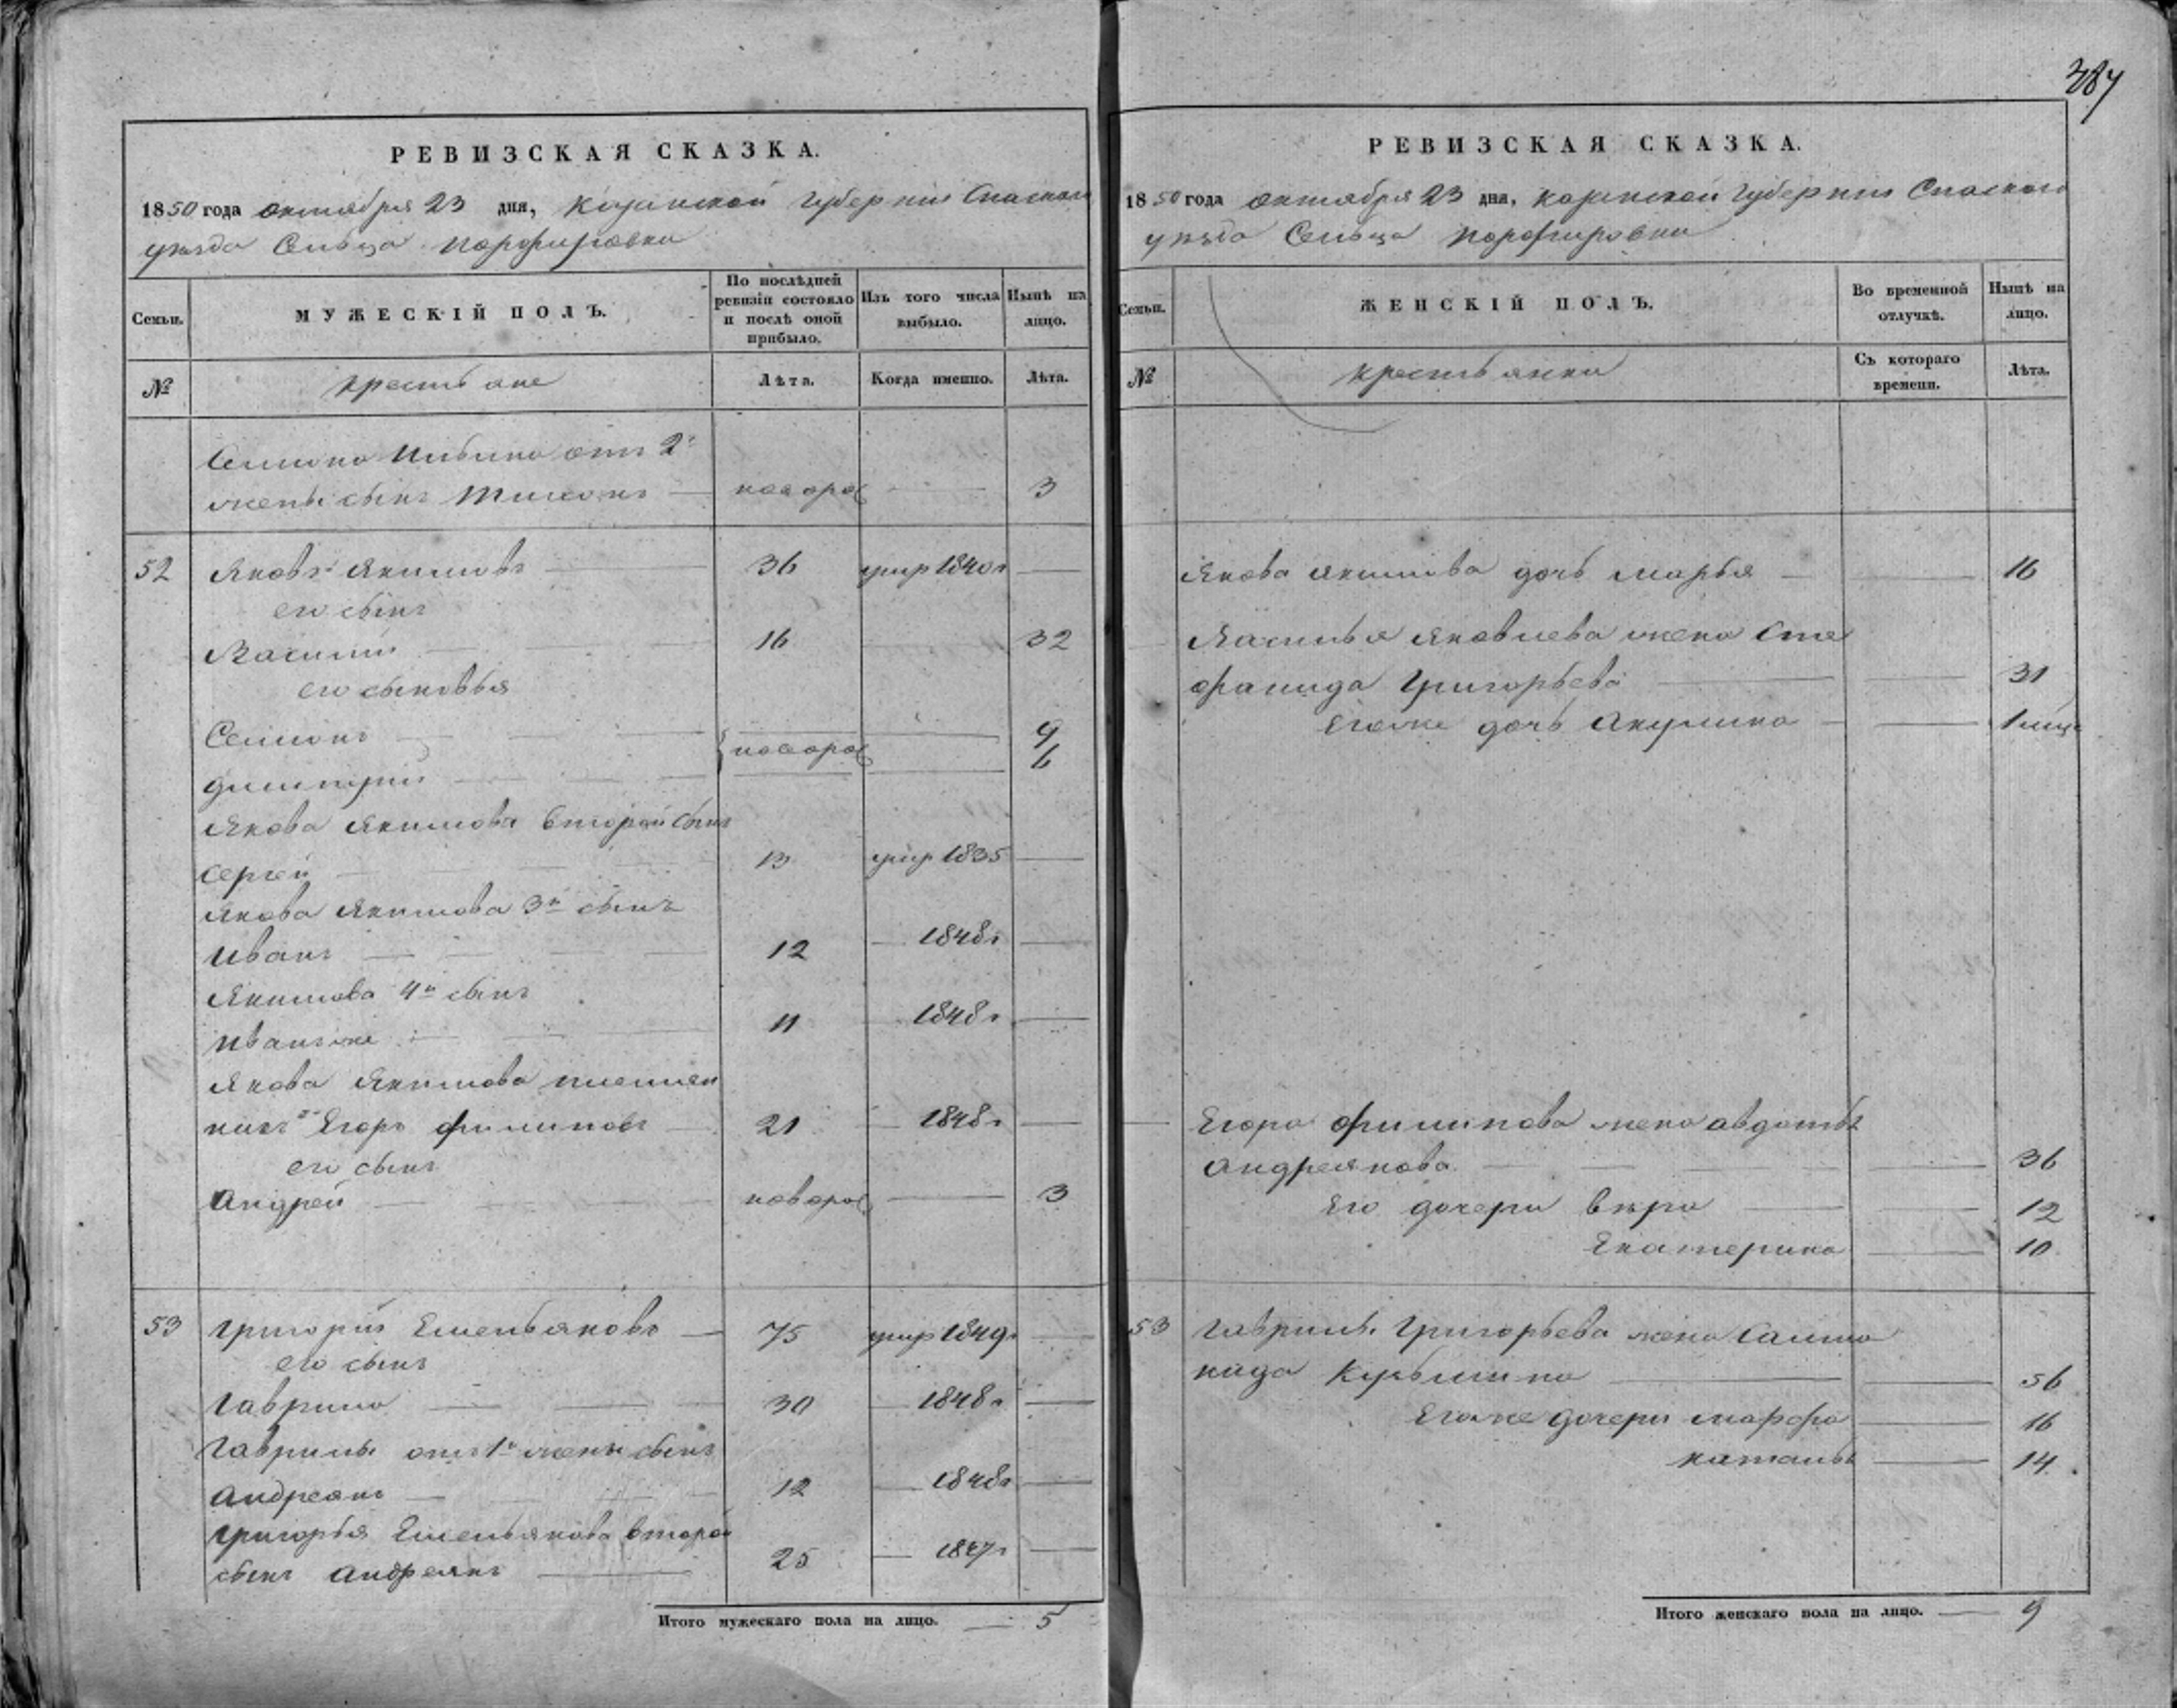 387
РЕВИЗСКАЯ СКАЗКА.
1850 года октября 23 дня, Казанской Губернии Спаскаго
уѣзда Сельца Порфировки
Семьи.
МУЖЕСКІЙ ПОЛЪ.
По послѣдней ревизіи состояло и послѣ оной прибыло.
Изъ того числа выбыло.
Нынѣ на лицо.
№
крестьяне
Лѣта.
Когда именно.
Лѣта.
отъ 2й
жены сынъ новорож 3
52 Яковъ Якимовъ 36 умр 1840г
его сынъ
Василий 16 32
его сыновья
Семионъ 9
новорож
Димитрий 6
Якова Якимова второй сынъ
Сергей 13 умр 1835
Якова Якимова 3й сынъ
Иванъ 12 1848г
Якимова 4й сынъ
Иванъ же 11 1848г
Якова Якимова племян
никъ Егоръ Филиповъ 21 1848г
его сынъ
Андрей новорож 3
53 Григорий Емельяновъ 75 умр 1849г
его сынъ
Гаврило 30 1848г
Гаврилы отъ 1й жены сынъ
Андреянъ 12 1848г
Григорья Емельянова второй
сынъ Андреянъ 25 1847г
Итого мужескаго пола на лицо. 5
РЕВИЗСКАЯ СКАЗКА.
1850 года октября 23 дня, Казанской Губернии Спаскаго
уѣзда Сельца Порфировки
Семьи.
ЖЕНСКІЙ ПОЛЪ.
Во временной отлучкѣ.
Нынѣ на лицо.
№
крестьянки
Съ котораго времени.
Лѣта.
Якова Якимова дочь Марья 16
Василья Яковлева жена Сте
фанида Григорьева 31
Его же дочь Акулина
Егора Филипова жена Авдотья
Андреянова 36
Его дочери Вѣра 12
Екатерина 10
53 Гаврилы Григорьева жена
Кузьмина 56
Его же дочери Марфа 16
Наталья 14
Итого женскаго пола на лицо. 9